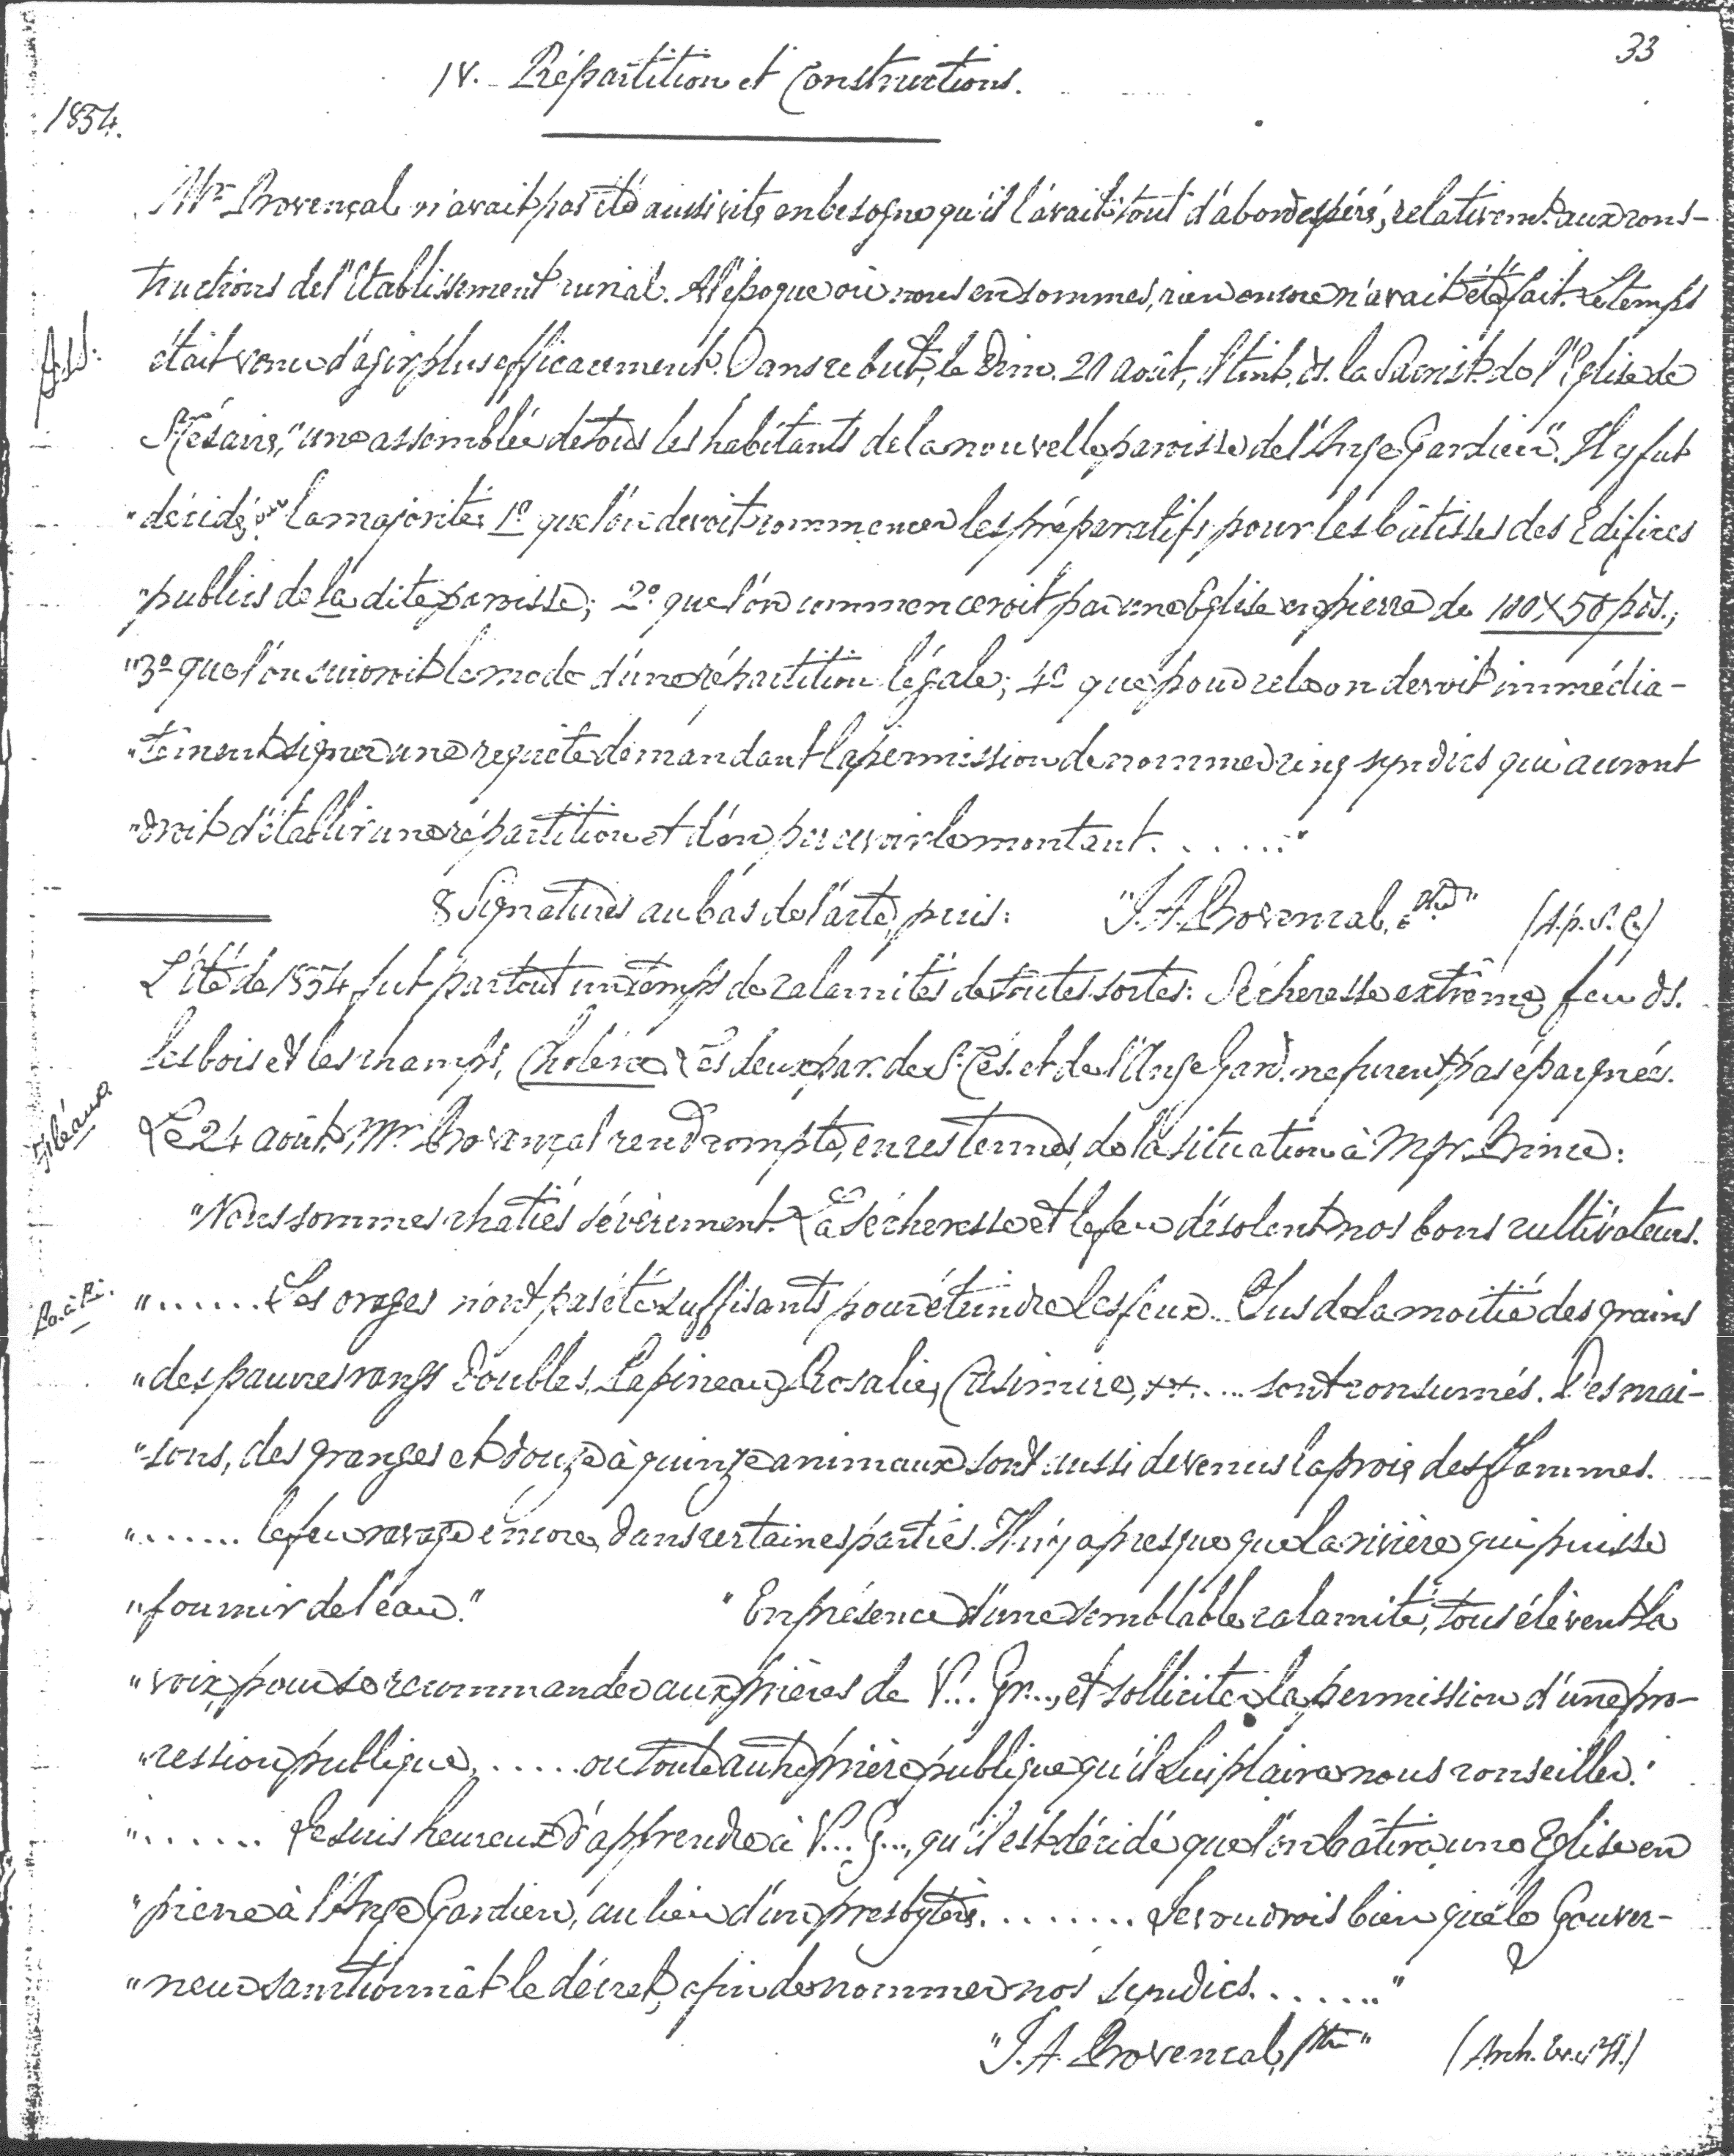 33
IV. Répartition et Constructions.
1854.
Mr Provençal n'avait pas été aussi vite en besogne qu'il l'avait tout d'abord espéré, relativemt. aux cons-
tructions de l'Etablissement curial. A l'époque où nous en sommes, rien encore n'avait été fait. Le temps
était venu d'agir plus efficacement. Dans ce but, le Dim. 20 août, il tint, ds. la Sacrist. de l'Eglise de
St Césaire, "une assemblée de tous les habitants de la nouvelle paroisse de l'Ange Gardien". Il y fut
"décidé, par la majorité: 1º que l'on devoit commencer les préparatifs pour les bâtisses des Edifices
"publics de la dite paroisse; 2º que l'on commenceroit par une Eglise en pierre de 100 X 50 pds.;
"3º que l'on suivroit le mode d'une répartition légale; 4º que pour cela on devoit immédia-
"tement signer une requête demandant la permission de nommer cinq syndics qui auront
"droit d'établir une répartition et d'en percevoir le montant. ......"
8 Signatures au bas de l'acte, puis: "J. A. Provençal, Ptre" (A. p. S. C.)
L'été de 1854 fut partout un temps de calamités de toutes sortes: Sécheresse extrême, feu ds.
les bois et les champs, Choléra. Les deux par. de St Cés. et de l'Ange Gard. ne furent pas épargnées.
Fléaux.
Le 24 août, Mr Provençal rend compte, en ces termes, de la situation à Mgr. Prince:
"Nous sommes chatiés sévèrement. La sécheresse et le feu désolent nos bons cultivateurs.
"...... Les orages n'ont pas été suffisants pour éteindre les feux... Plus de la moitié des grains
"des pauvres rangs doubles, Papineau, Rosalie, Casimire, ++ .... sont consumés. Des mai-
"sons, des granges et douze à quinze animaux sont aussi devenus la proie des flammes.
"...... le feu ravage encore dans certaines parties. Il n'y a presque que la rivière qui puisse
"fournir de l'eau." "En présence d'une semblable calamité, tous élèvent la
"voix pour se recommander aux prières de V... Gr..., et solliciter la permission d'une pro-
"cession publique, ..... ou toute autre prière publique qu'il Lui plaira nous conseiller."
"...... Je suis heureux d'apprendre à V... G..., qu'il est décidé que l'on bâtira une Eglise en
"pierre à l'Ange Gardien, au lieu d'un presbytère. ........ Je voudrois bien que le Gouver-
"neur sanctionnât le décret, afin de nommer nos syndics. ......"
"J. A. Provençal, Ptre" (Arch. Ev. St H.)